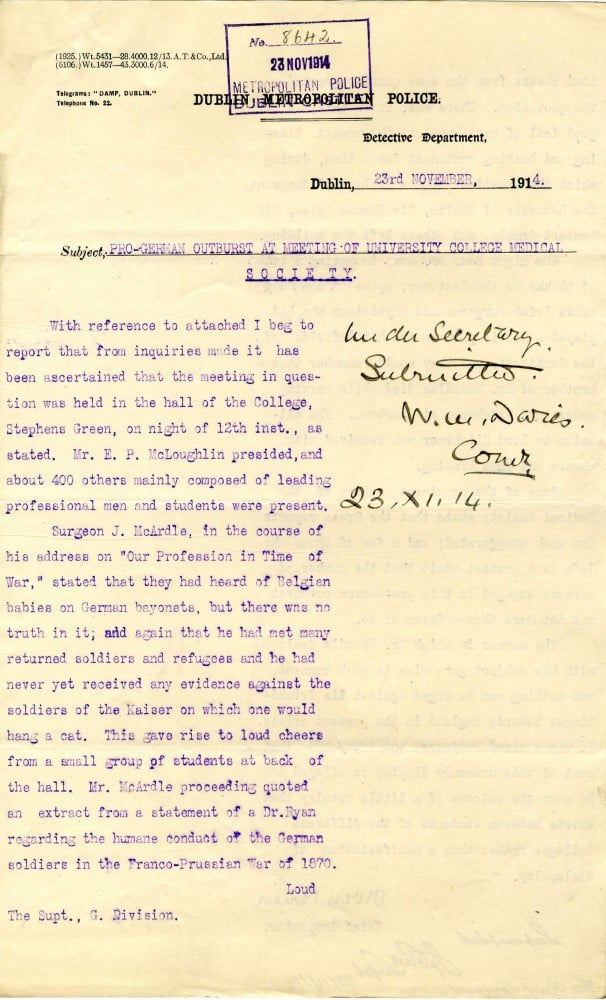 No. 8642.
23 NOV 1914
METROPOLITAN POLICE
DUBLIN
(1925.) Wt.5431—28.4000.12/13. A.T.&Co., Ltd.
(5106.) Wt.1457—43.3000.6/14.
Telegrams: "DAMP, DUBLIN."
Telephone No. 22.
DUBLIN METROPOLITAN POLICE.
Detective Department,
Dublin, 23rd NOVEMBER, 1914.
Subject, PRO-GERMAN OUTBURST AT MEETING OF UNIVERSITY COLLEGE MEDICAL
SOCIETY.
With reference to attached I beg to
report that from inquiries made it has
been ascertained that the meeting in ques-
tion was held in the hall of the College,
Stephens Green, on night of 12th inst., as
stated. Mr. E. P. McLoughlin presided, and
about 400 others mainly composed of leading
professional men and students were present.
Surgeon J. McArdle, in the course of
his address on "Our Profession in Time of
War," stated that they had heard of Belgian
babies on German bayonets, but there was no
truth in it; and again that he had met many
returned soldiers and refugees and he had
never yet received any evidence against the
soldiers of the Kaiser on which one would
hang a cat. This gave rise to loud cheers
from a small group of students at back of
the hall. Mr. McArdle proceeding quoted
an extract from a statement of a Dr. Ryan
regarding the humane conduct of the German
soldiers in the Franco-Prussian War of 1870.
Loud
The Supt., G. Division.
Under Secretary.
Submitted.
W. M. Davies.
Comr.
23.XI.14.